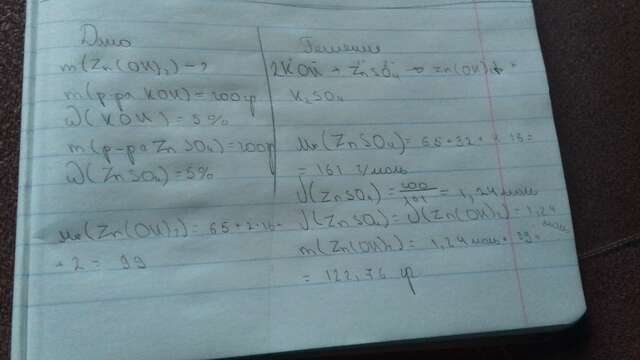 Дано
m(Zn(OH)₂) - ?
m(р-ра KOH) = 200 гр
ω(KOH) = 5%
m(р-ра ZnSO₄) = 200 гр
ω(ZnSO₄) = 5%
Mr(Zn(OH)₂) = 65 + 2·16 +
+ 2 = 99
Решение
2KOH + ZnSO₄ → Zn(OH)₂↓ +
K₂SO₄
Mr(ZnSO₄) = 65 + 32 + 4·16 =
= 161 г/моль
ν(ZnSO₄) = 200/161 = 1,24 моль
ν(ZnSO₄) = ν(Zn(OH)₂) = 1,24 моль
m(Zn(OH)₂) = 1,24 моль · 99 =
= 122,76 гр